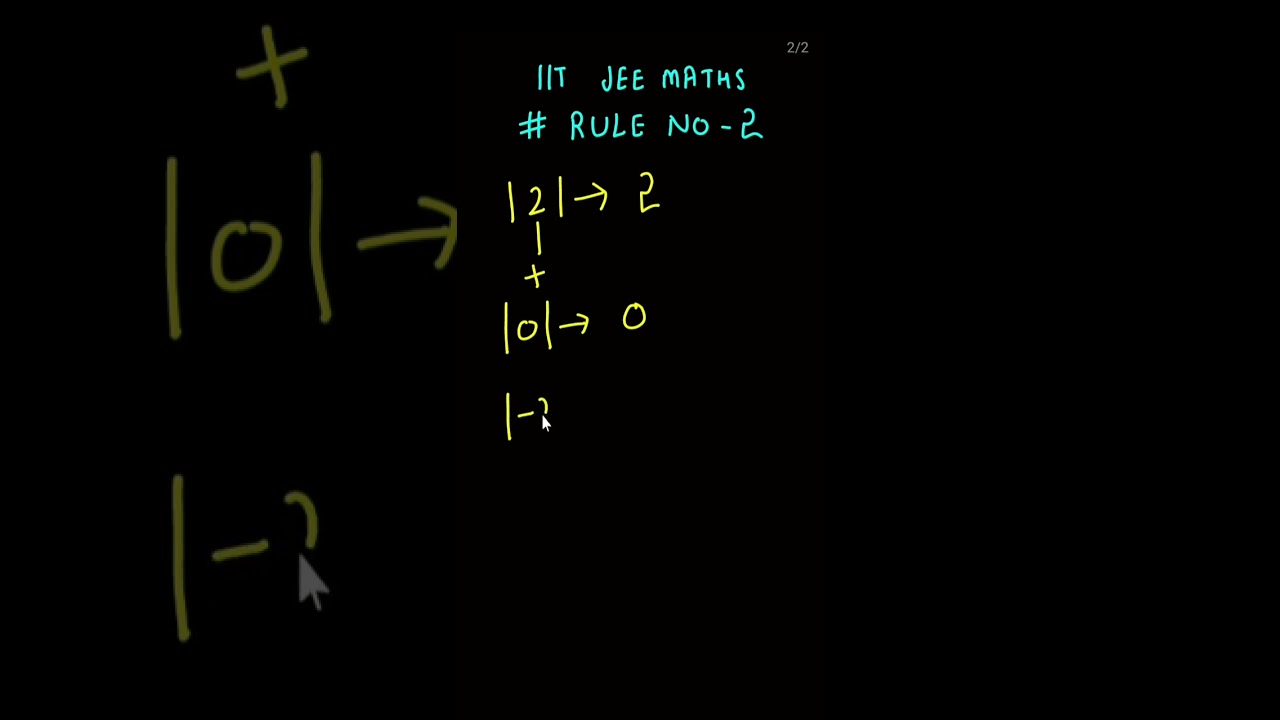 2/2
IIT JEE MATHS
# RULE NO - 2
|2| → 2
+
|0| → 0
|-